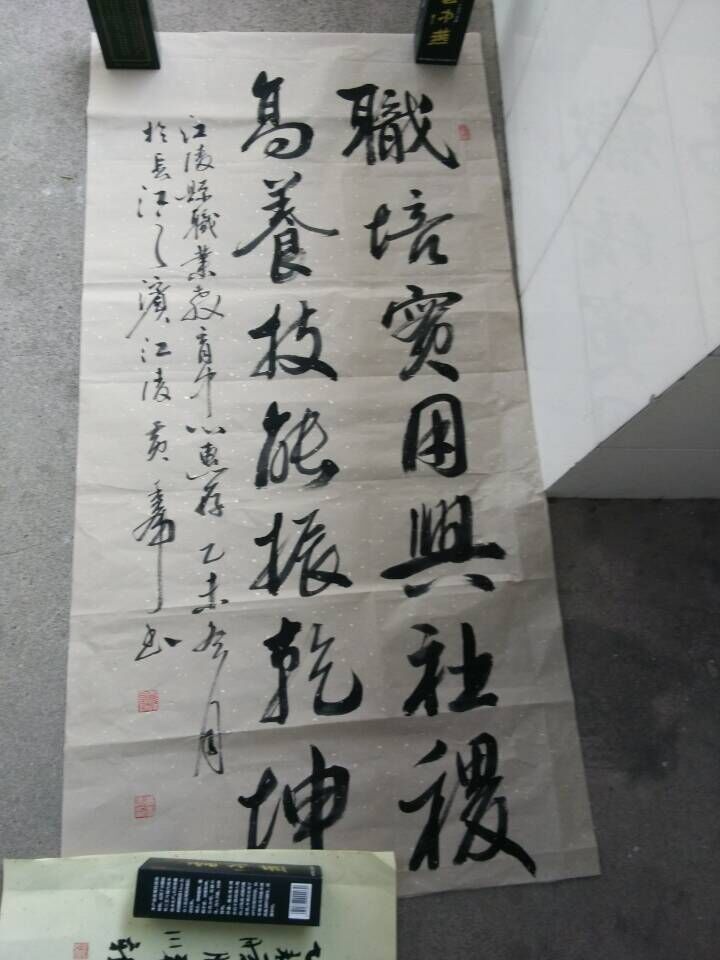 職培實用興社稷
高養技能振乾坤
江陵縣職業教育中心惠存 乙未冬月
於長江之濱 江陵黃華書